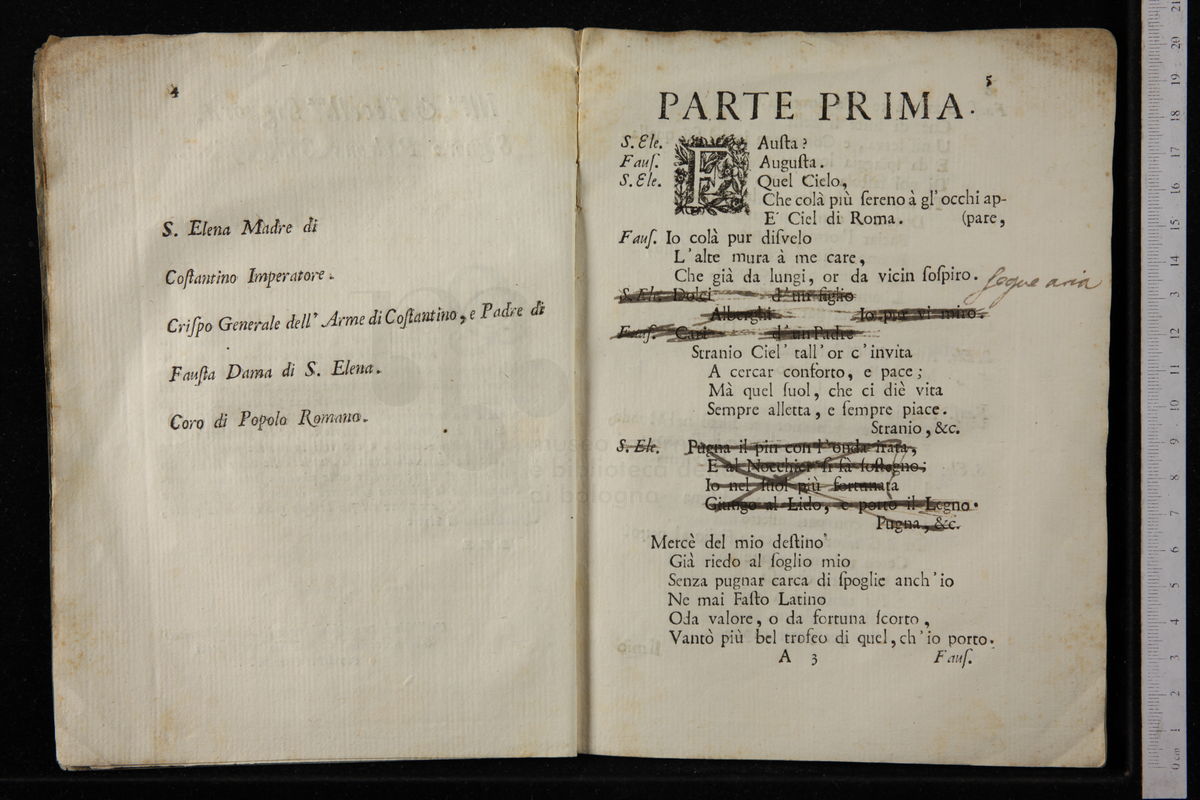 4
S. Elena Madre di
Coſtantino Imperatore.
Criſpo Generale dell' Arme di Coſtantino, e Padre di
Fauſta Dama di S. Elena.
Coro di Popolo Romano.
5
PARTE PRIMA.
S. Ele. FAuſta?
Fauſ. Auguſta.
S. Ele. Quel Cielo,
Che colà più ſereno à gl' occhi ap-
E' Ciel di Roma. (pare,
Fauſ. Io colà pur diſvelo
L'alte mura à me care,
Che già da lungi, or da vicin ſoſpiro. ſegue aria
S. Ele. Dolci d'un figlio
Alberghi Io pur vi miro.
Fauſ. Cari d'un Padre
Stranio Ciel' tall' or c'invita
A cercar conforto, e pace;
Mà quel ſuol, che ci diè vita
Sempre alletta, e ſempre piace.
Stranio, &c.
S. Ele. Pugna il pin con l'onda irata,
E al Nocchier ſi fà ſoſtegno;
Io nel ſuol più fortunata
Giungo al Lido, e porto il Legno.
Pugna, &c.
Mercè del mio deſtino
Già riedo al ſoglio mio
Senza pugnar carca di ſpoglie anch'io
Ne mai Faſto Latino
Oda valore, o da fortuna ſcorto,
Vantò più bel trofeo di quel, ch'io porto.
A 3 Fauſ.